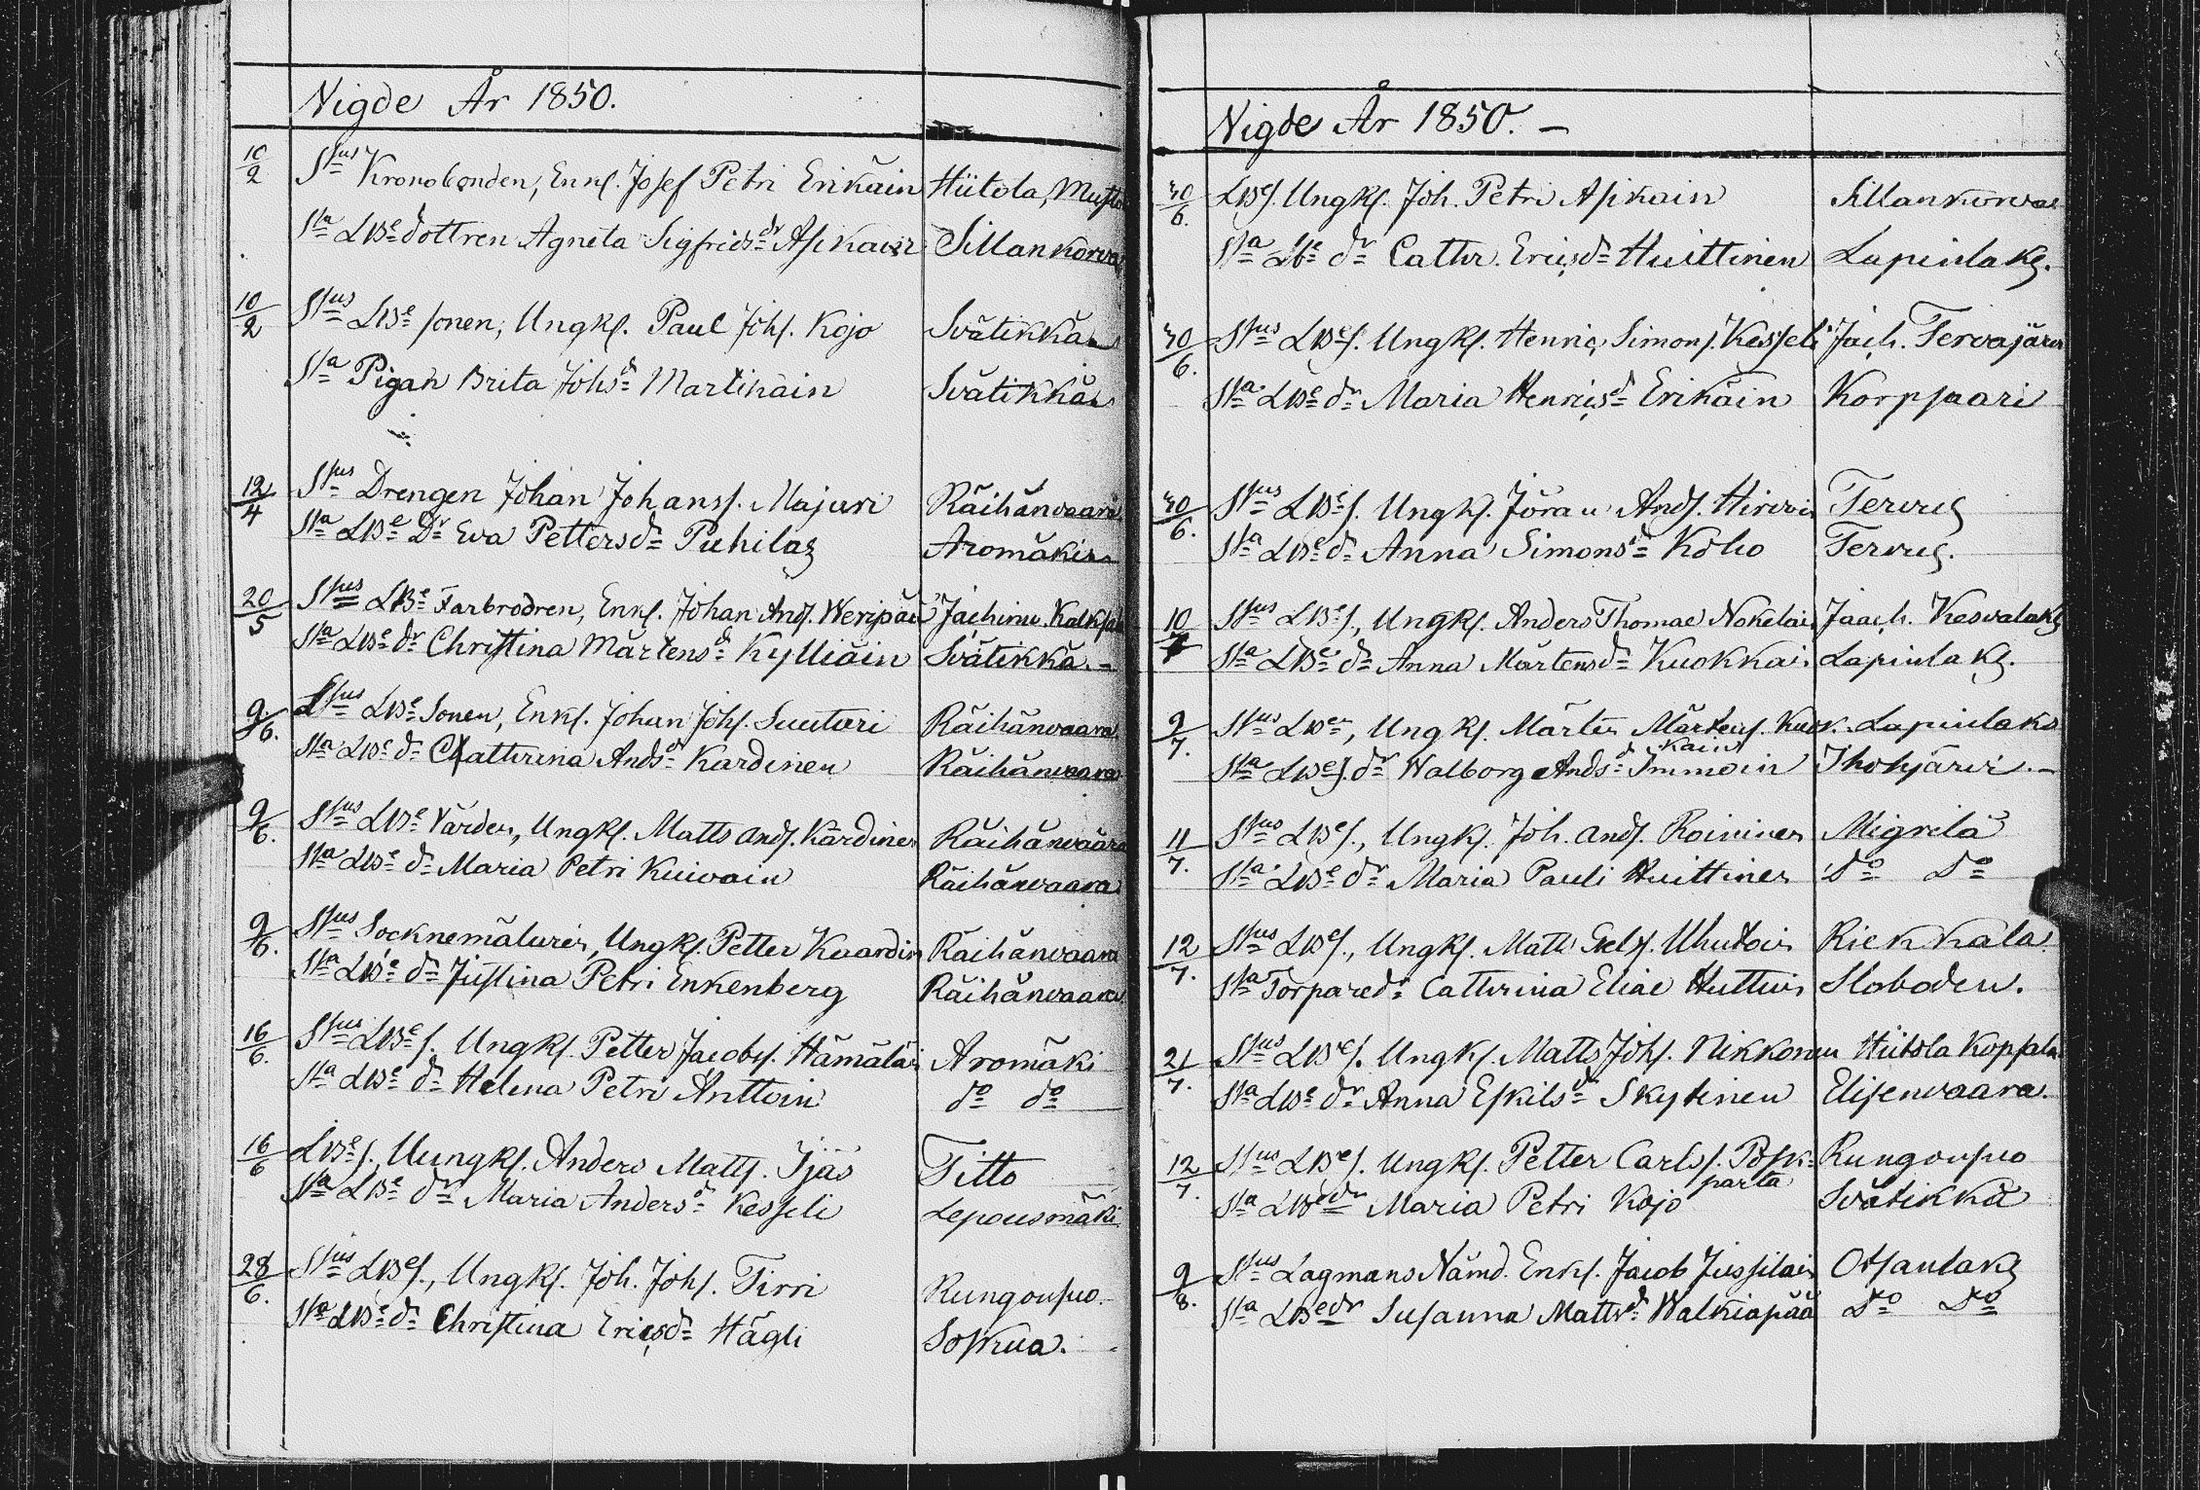 Vigde År 1850.
10/2 Sps Kronobonden, Enkl. Josef Petri Erikäin Hiitola, Musto
Sta LBe dottren Agneta Sigfridsdr Asikain Sillankorva
10/2 Sps LBe sonen, Ungkl. Paul Johs. Kojo Svätikkä
Sta Pigan Brita Johsd Martikain Svätikkä
12/4 Sps Drengen Johan Johanss. Majuri Räihänvaara
Sta LBe Dr Eva Pettersd Puhilas Aromäki
20/5 Sps LBe Farbrodren, Enkl. Johan Ands. Weripää Jachimv. Kalksalo
Sta LBe dr Christina Mårtensd Kylliäin Svätikkä
9/6. Sps LBe Sonen, Enkl. Johan Johs. Suutari Räihänvaara
Sta LBe dr Cathrina Andsd Kardinen Räihänvaara
9/6. Sps LBe Värden, Ungkl. Matts Ands. Kärdinen Räihänvaara
Sta LBe dr Maria Petri Kuivain Räihänvaara
9/6. Sps Socknemålaren, Ungkl. Petter Kaardin Räihänvaara
Sta LBe dr Justina Petri Enkenberg Räihänvaara
16/6. Sps LBe s. Ungkl. Petter Jacobs. Hämäläin Aromäki
Sta LBe dr Helena Petri Anttoin do do
16/6 LBe s. Uungkl. Anders Matts. Ijäs Titto
Sta LBe dr Maria Andersd Kesseli Lepousmäki
28/6. Sps LBes., Ungkl. Joh. Johs. Tirri Rungonsuo
Sta LBe dr Christina Ericsdr Hägli Soskua.
Vigde År 1850. –
30/6. LBes. Ungkl. Joh. Petri Asikain Sillankorva
Sta LBe dr Cathr. Ericsd Huittinen Lapinlaks.
30/6. Sps LBes. Ungkl. Henric Simons. Kesseli Jach. Tervajärvi
Sta LBe dr Maria Henricsd Erikäin Korpsaari
30/6. Sps LBes. Ungkl. Jöran Ands. Hirvoi Tervus
Sta LBe dr Anna Simonsd Koho Tervus.
10/7 Sps LBes., Ungkl. Anders Thomae Nokelain Jaach. Kesvalaks
Sta LBe dr Anna Mårtensd Kuokkai Lapinlaks.
9/7. Sps LBes, Ungkl. Mårten Mårtens. Kuok- Lapinlaks
kain
Sta LBes. dr Walborg Andsd Immoin Ihojärvi. –
11/7. Sps LBes., Ungkl. Joh. Ands. Roininen Migrilä
Sta LBe dr Maria Pauli Huittinen do do
12/7. Sps LBes., Ungkl. Matts Uhutoin Riekkala
Sta Torpared. Cathrina Eliae Huttuin Sloboden.
21/7. Sps LBes. Ungkl. Matts Johs. Nikkonen Hiitola Kopsala
Sta LBe dr Anna Eskilsd Skytinen Elisenvaara.
12/7. Sps LBes. Ungkl. Petter Carlss. Posk- Rungonsuo
parta
Sta LBe dr Maria Petri Kojo Svätikkä
9/8. Sps Lagmans Nämd. Enkl. Jacob Jussilain Otsanlaks
Sta LBe dr Susanna Mattsd Walkiapää do do